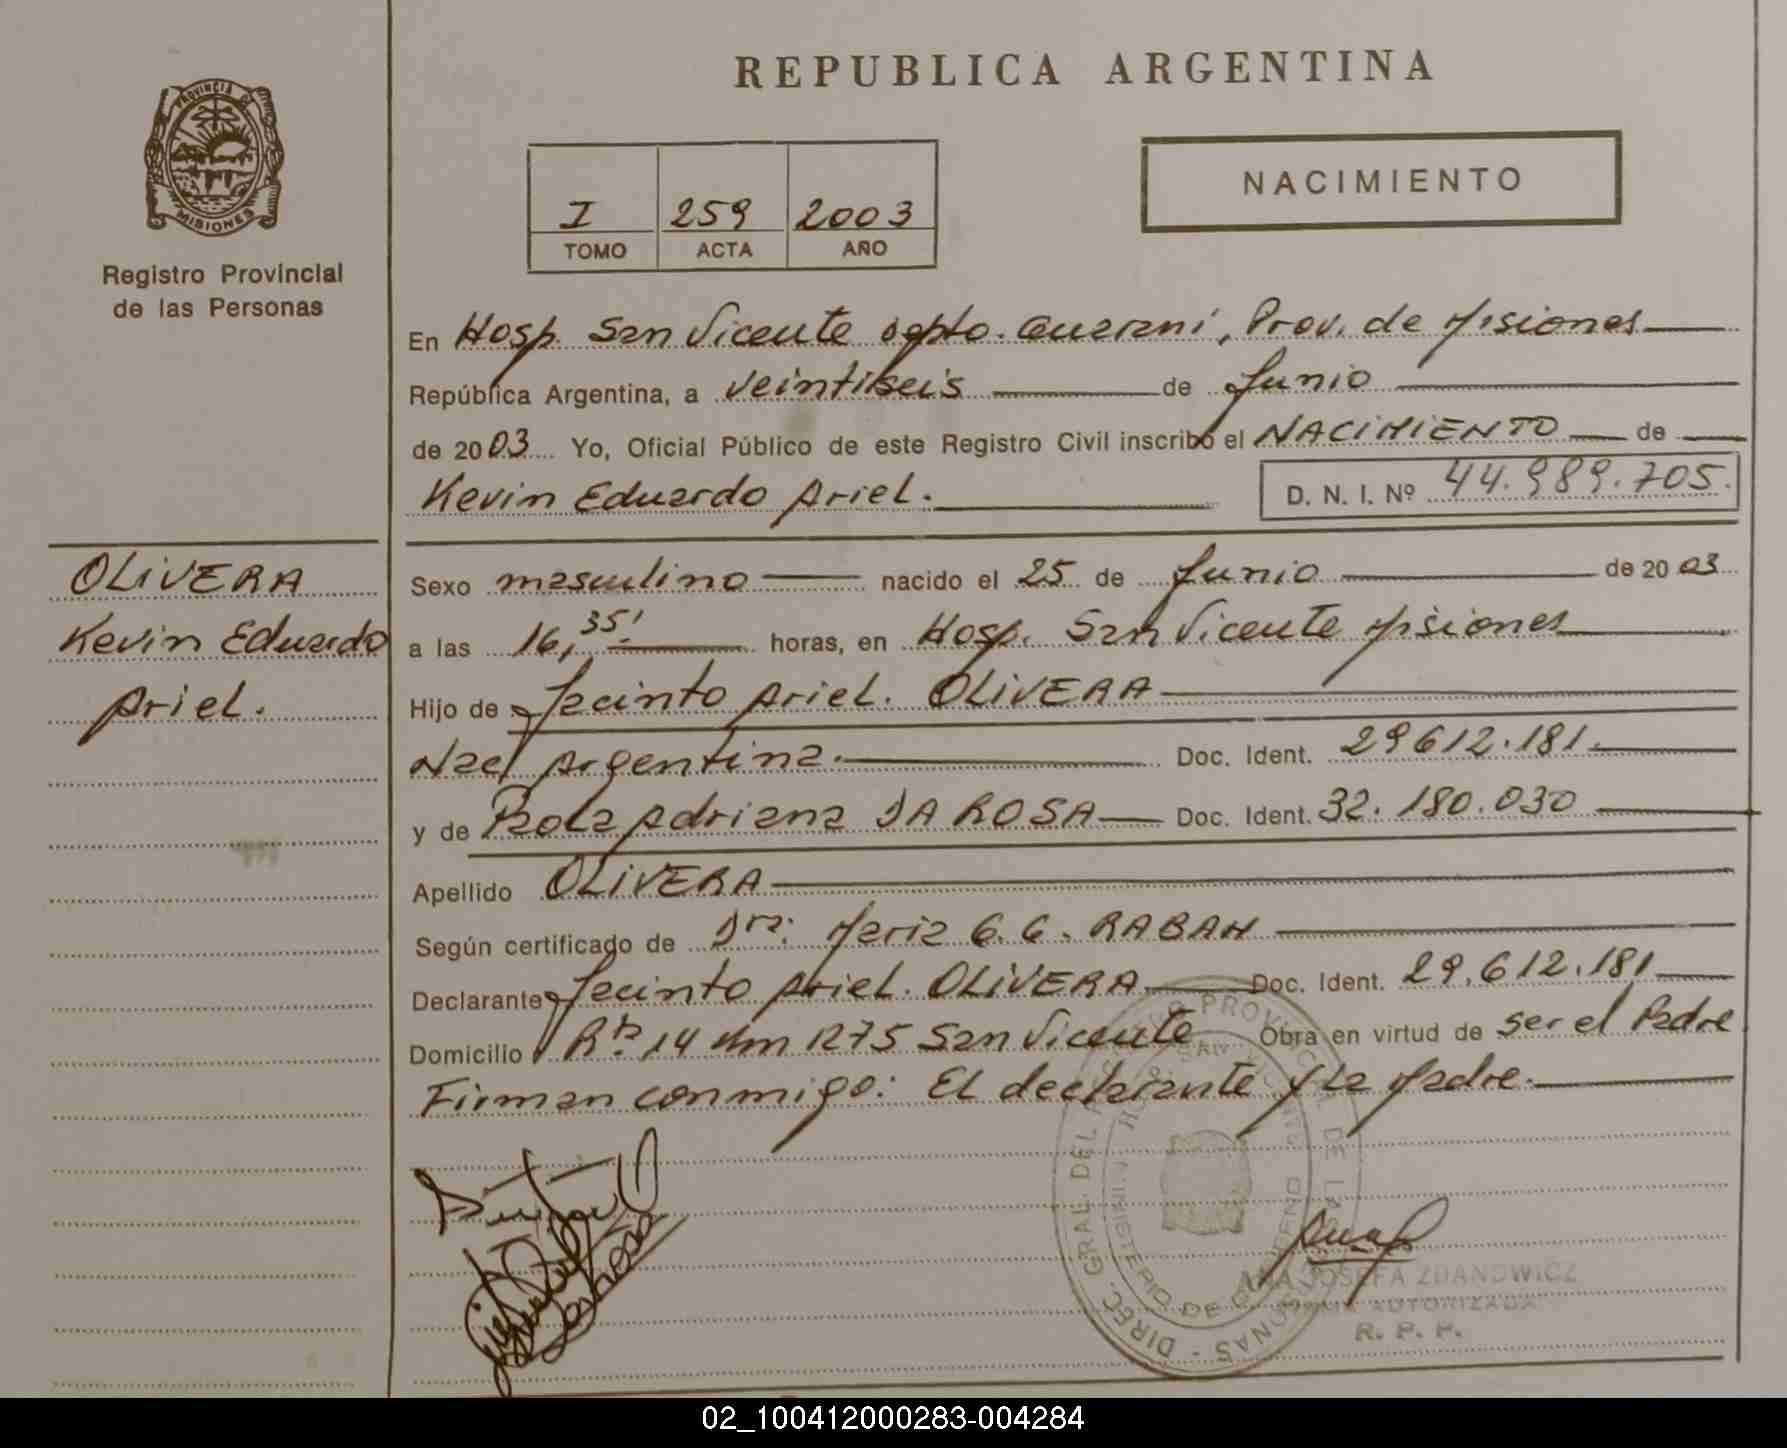 REPUBLICA ARGENTINA
PROVINCIA DE
MISIONES
Registro Provincial
de las Personas
I 259 2003
TOMO ACTA AÑO
NACIMIENTO
En Hosp. San Vicente Dpto. Guaraní, Prov. de Misiones
República Argentina, a veintiseis de Junio
de 2003 Yo, Oficial Público de este Registro Civil inscribo el NACIMIENTO de
Kevin Eduardo Ariel.
D. N. I. Nº 44.989.705.
OLIVERA
Kevin Eduardo
Ariel.
Sexo masculino nacido el 25 de Junio de 2003
a las 16,35' horas, en Hosp. San Vicente Misiones
Hijo de Jacinto Ariel. OLIVERA
Nac. Argentina. Doc. Ident. 29612.181.
y de Paola Adriana DA ROSA Doc. Ident. 32.180.030
Apellido OLIVERA
Según certificado de Dra: Maria G. G. RABAH
Declarante Jacinto Ariel. OLIVERA Doc. Ident. 29.612.181
Domicilio Rta. 14 Km 1275 San Vicente Obra en virtud de ser el Padre
Firman conmigo: El declarante y La Madre.
ANA JOSEFA ZDANOWICZ
FIRMA AUTORIZADA
R. P. P.
02_100412000283-004284